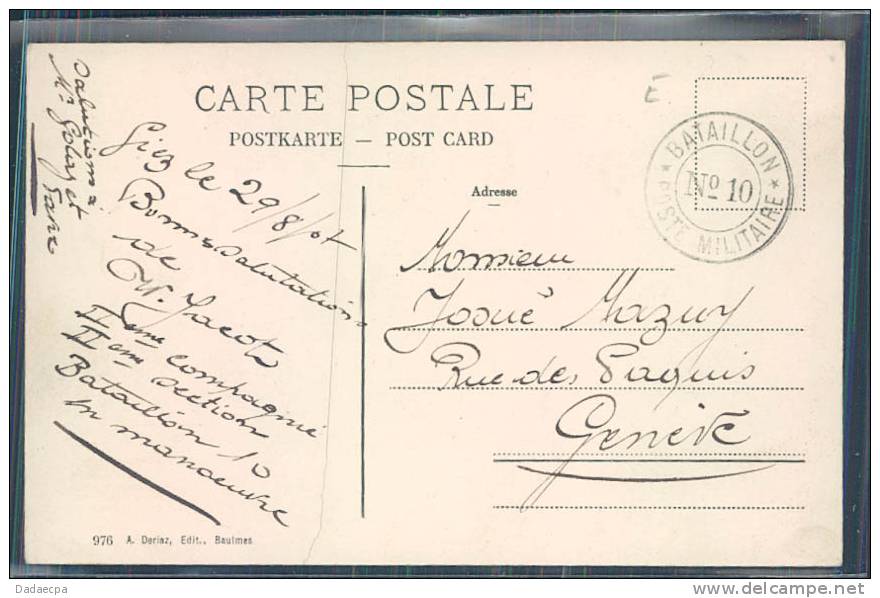 CARTE POSTALE
POSTKARTE — POST CARD
Adresse
* BATAILLON *
Nº 10
POSTE MILITAIRE
E
Salutations à
Mr et
Giez le 29/8/07
Bonnes Salutations
de
W. Jacot
IIeme compagnie
IIeme section
Bataillon 10
en manoeuvre
Monsieur
Josué Mazuy
Rue des Paquis
Genève
976 A. Deriaz, Edit., Baulmes
Dadaecpa
http://www.delcampe.net